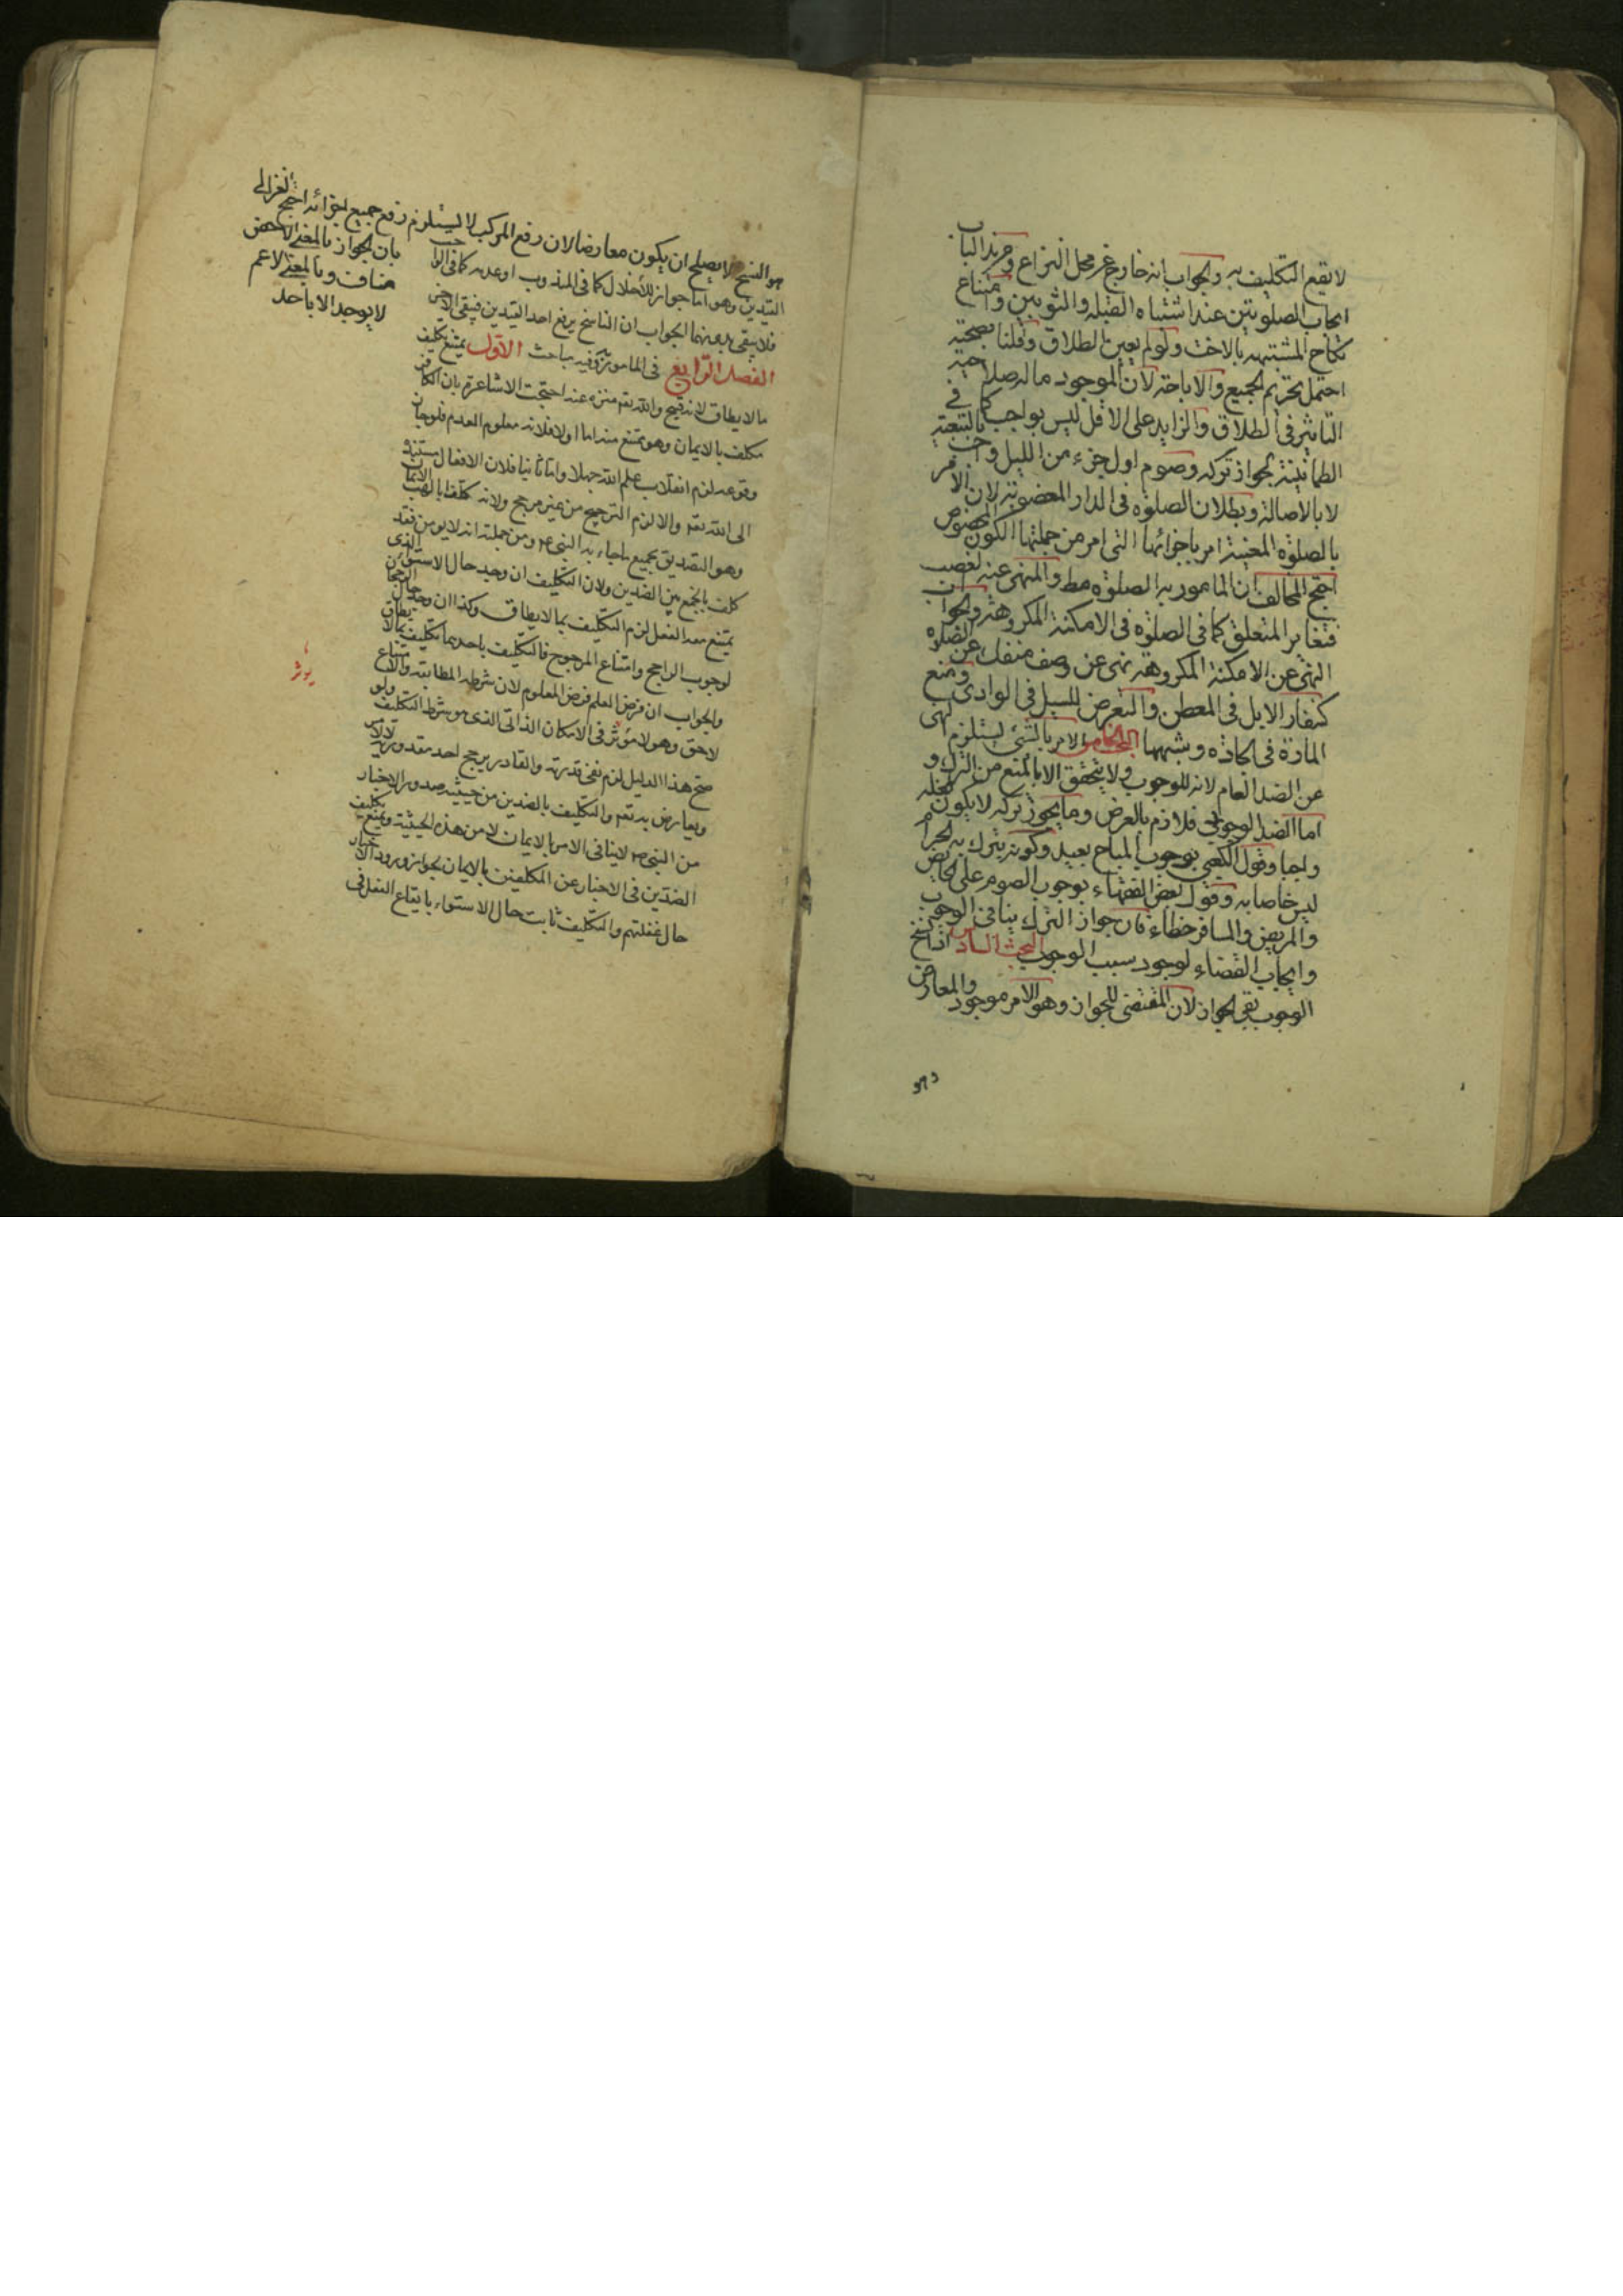 لا يقع التكليف به والجواب انه خارج عن محل النزاع ومن هذا الباب
ايجاب الصلوتين عند اشتباه القبلة والثوبين وامتناع
نكاح المشتبهة بالاخت ولو لم يعين بالطلاق وقلنا بصحته
احتمل تحريم الجميع والاباحة لان الموجود ماله صلاحية
التاثير في الطلاق والزايد على الاقل ليس بواجب كما في
الطمانينة لجواز تركه وصوم اول جزء من الليل واجب بالتبعية
لا بالاصالة وبطلان الصلوة في الدار المغصوبة لان الامر
بالصلوة المعينة امر باجزائها التي امر من جملتها الكون المخصوص
احتج المخالف ان المامور به الصلوة مط والمنهى عنه الغصب
فتغاير المتعلق كما في الصلوة في الامكنة المكروهة والجواب
النهى عن الامكنة المكروهة نهى عن وصف منفك عن الصلوة
كنفار الابل في المعطن والتعرض للسيل في الوادي ومنع
المارة في الجادة وشبهها البحث الخامس الامر بالشئ يستلزم النهى
عن الضد العام لانه للوجوب ولا يتحقق الا بالمنع من الترك و
اما الضد الوجودي فلازم بالعرض وما يجوز تركه لا يكون فعله
واجبا وقول الكعبي بوجوب المباح بعيد وكونه يترك به الحرام
ليس خاصا به وقول بعض الفقهاء بوجوب الصوم على الحايض
والمريض والمسافر خطاء فان جواز الترك ينافي الوجوب
وايجاب القضاء لوجود سبب الوجوب البحث السادس اذا نسخ
الوجوب بقي الجواز لان المقتضى للجواز وهو الامر موجود والمعارض
وهو
هو النسخ لا يصلح ان يكون معارضا لان رفع المركب لا يستلزم رفع جميع اجزائه احتج الغزالي
بان الجواز بالمعنى الاخص
مناف وبالمعنى الاعم
لا يوجد الا باحد
القيدين وهو اما جواز للاخلال كما في المندوب او عدمه كما في الواجب
فلا يبقى بدونهما الجواب ان الناسخ يرفع احد القيدين فيبقى الاخر
الفصل الرابع في المامور به وفيه مباحث الاول يمتنع تكليف
ما لا يطاق لانه قبيح والله تعه منزه عنه احتجت الاشاعرة بان الكافر
مكلف بالايمان وهو ممتنع منه اما اولا فلانه معلوم العدم فلو جاز
وقوعه لزم انقلاب علم الله جهلا واما ثانيا فلان الافعال مستندة
الى الله تعه والا لزم الترجيح من غير مرجح ولانه كلف ابا لهب الايمان
وهو التصديق بجميع ما جاء به النبي ص ومن جملته انه لا يؤمن فقد
كلف بالجمع بين الضدين ولان التكليف ان وجد حال الاستواء الذي
يمتنع معه الفعل لزم التكليف بما لا يطاق وكذا ان وجد حال الرجحان
لوجوب الراجح وامتناع المرجوح فالتكليف باحدهما تكليف بما لا يطاق
والجواب ان فرض العلم فرض المعلوم لان شرطه المطابقة والامتناع
لاحق وهو لا مؤثر في الامكان الذاتي الذي هو شرط التكليف ولو
يؤثر
صح هذا الدليل لزم نفي قدرته والقادر يرجح احد مقدوريه
ويعارض به تعه والتكليف بالضدين من حيثية صدور الاخبار
من النبي ص لا ينافي الامر بالايمان لا من هذه الحيثية ويمتنع تكليف
الضدين في الاخبار عن المكلفين بالايمان لجواز ورود الاخبار
حال غفلتهم والتكليف ثابت حال الاستواء بايقاع الفعل في